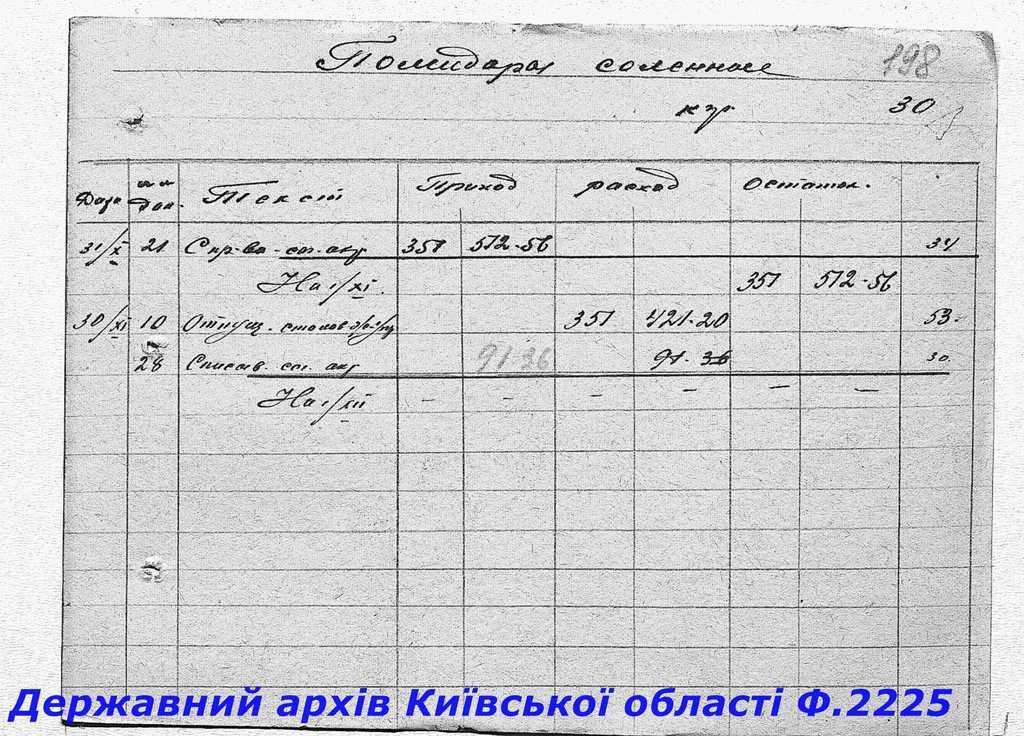 Помидоры соленные 198
кгр 30
Дата Текст Приход расход Остаток.
док.
31/X 21 Спр-ва 351 512-56 34
На 1/XI. 351 512-56
30/XI 10 Отпущ. столов 351 421-20 53.
28 Списав. 91-36 91-36 30.
На 1/XII – – – – – –
Державний архів Київської області Ф.2225